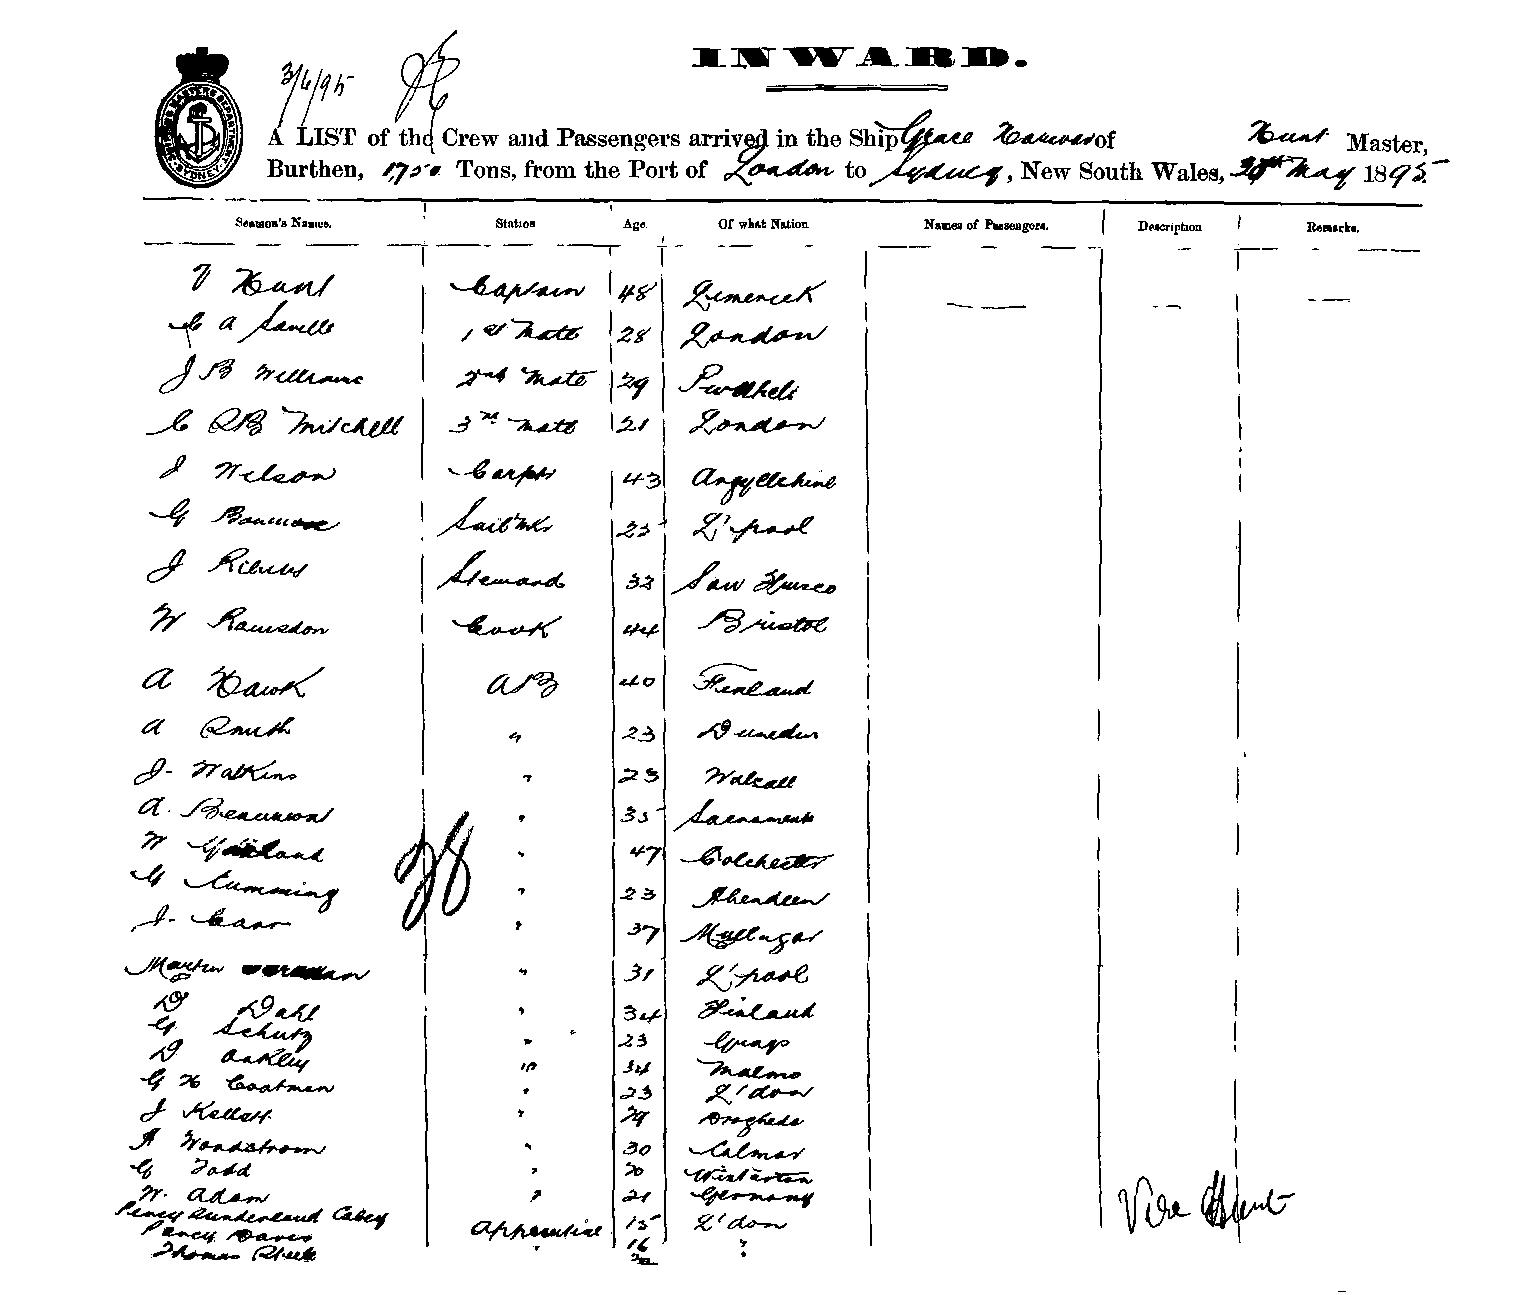 INWARD.
3/6/95
A LIST of the Crew and Passengers arrived in the Ship Grace Harwar of Hunt Master,
Burthen, 1750 Tons, from the Port of London to Sydney, New South Wales, May 1895.
Seamen's Names. Station Age. Of what Nation Names of Passengers. Description Remarks.
Hunt Captain 48 Limerick
C A Saville 1st Mate 28 London
J B Williams 2nd Mate 29 Pwllheli
C RB Mitchell 3rd Mate 21 London
J Nelson Carptr 43 Argyllshire
G Sailmkr 25 L'pool
J Steward 32 San Frisco
W Ramsdon Cook 44 Bristol
A Hawk AB 40 Finland
A Smith " 23 Dunedin
J. Watkins " 23 Walsall
A. Beaumont " 35 Sacramento
W " 47 Colchester
G Cumming " 23 Aberdeen
J. Carr " 37
Martin " 31 L'pool
D Dahl " 34 Finland
G Schutz " 23
D Oakley " 34 Malmo
G H Coatman " 23 L'don
J Kellett " 29 Drogheda
A Woodstrom " 30 Calmar
G Todd " 20 Winterton
W. Adam " 21 Germany
Percy Sunderland Apprentice 15 L'don
Percy Davis " 16 "
Thomas "
28
Hunt